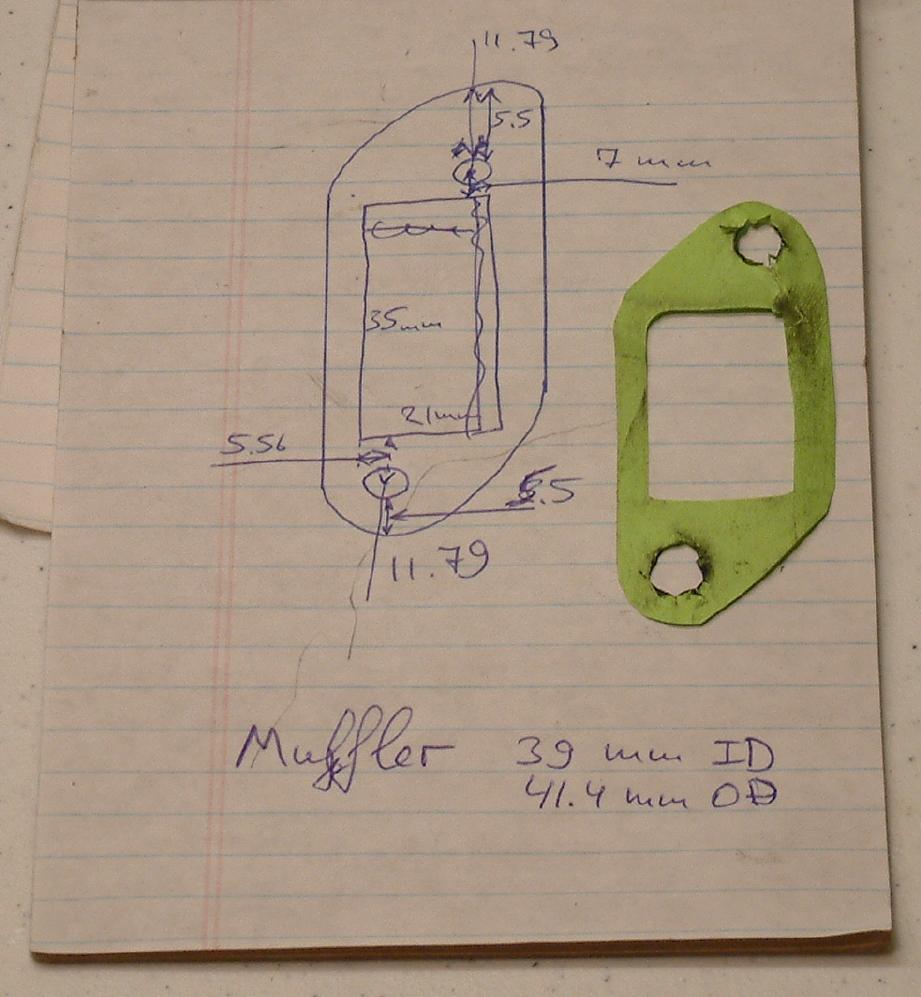 11.79
5.5
7 mm
35mm
21mm
5.56
5.5
11.79
Muffler 39 mm ID
41.4 mm OD